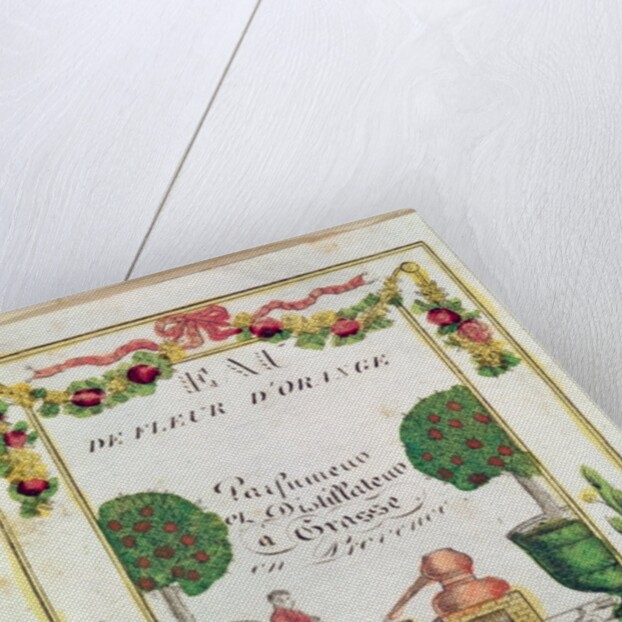 EAU
DE FLEUR D'ORANGE
Parfumeur
et Distillateur
a Grasse
en Provence